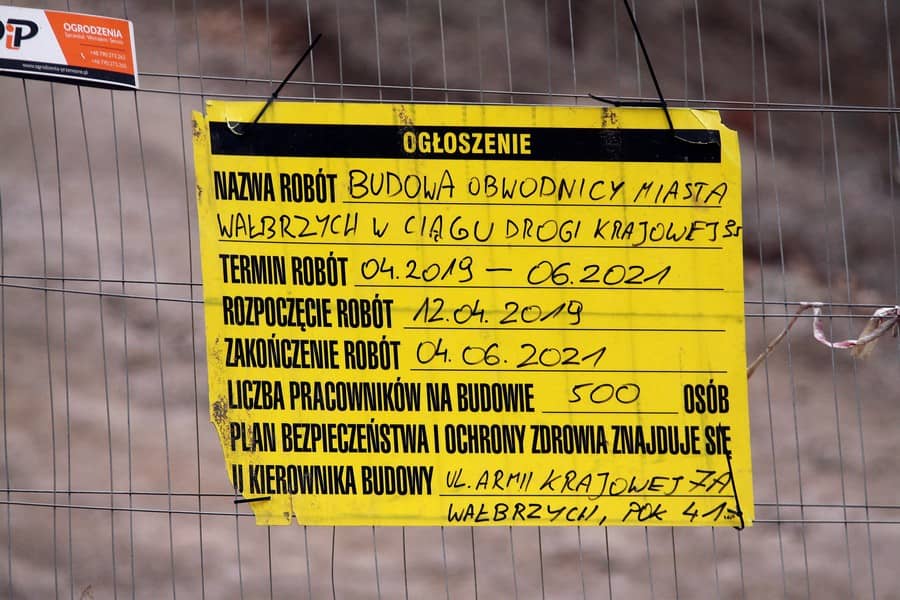 OGRODZENIA
OGŁOSZENIE
NAZWA ROBÓT BUDOWA OBWODNICY MIASTA
WAŁBRZYCH W CIĄGU DROGI KRAJOWEJ 35
TERMIN ROBÓT 04.2019 – 06.2021
ROZPOCZĘCIE ROBÓT 12.04.2019
ZAKOŃCZENIE ROBÓT 04.06.2021
LICZBA PRACOWNIKÓW NA BUDOWIE 500 OSÓB
PLAN BEZPIECZEŃSTWA I OCHRONY ZDROWIA ZNAJDUJE SIĘ
U KIEROWNIKA BUDOWY UL. ARMII KRAJOWEJ 7A
WAŁBRZYCH, POK